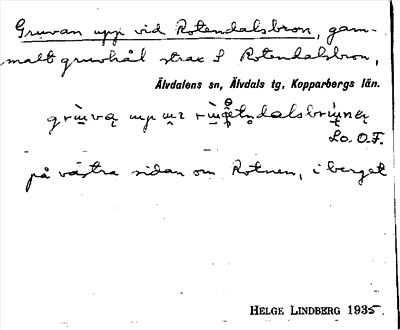 Gruvan uppi vid Rotendalsbron, gam-
malt gruvhål strax S Rotendalsbron,
Älvdalens sn, Älvdals tg, Kopparbergs län.
Lo. O.F.
på västra sidan om Rotnen, i berget
HELGE LINDBERG 1935.